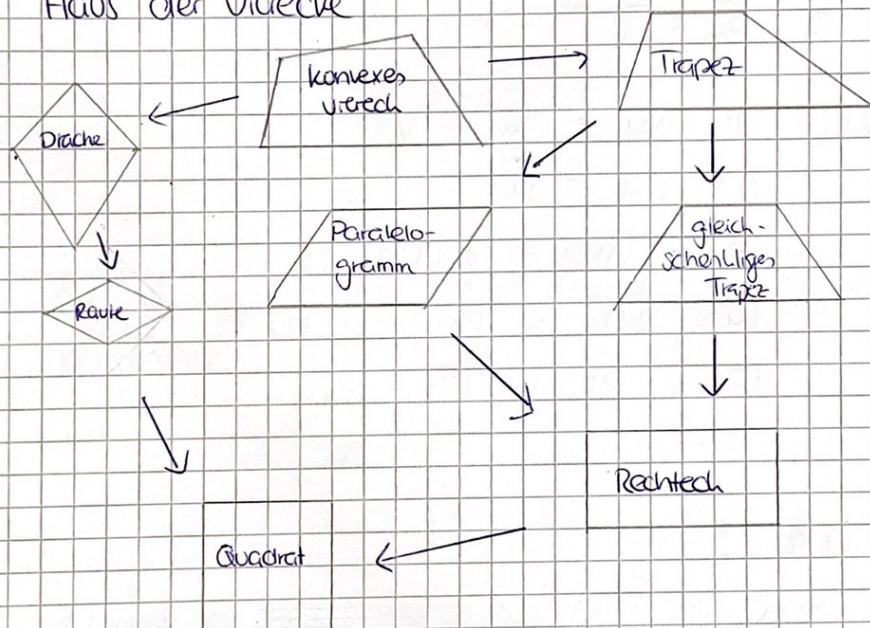 Haus der Vierecke
konvexes
Viereck
Trapez
Drache
Paralelo-
gramm
gleich-
schenkliges
Trapez
Raute
Rechteck
Quadrat